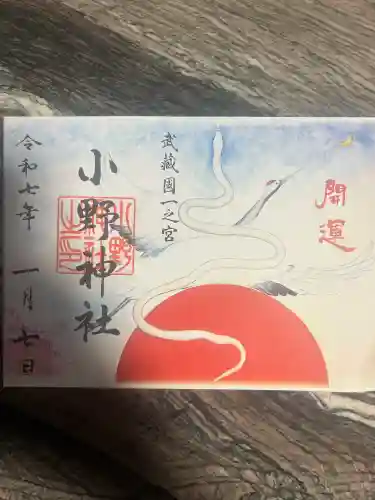 開運
武蔵國一之宮
小野神社
令和七年 一月七日